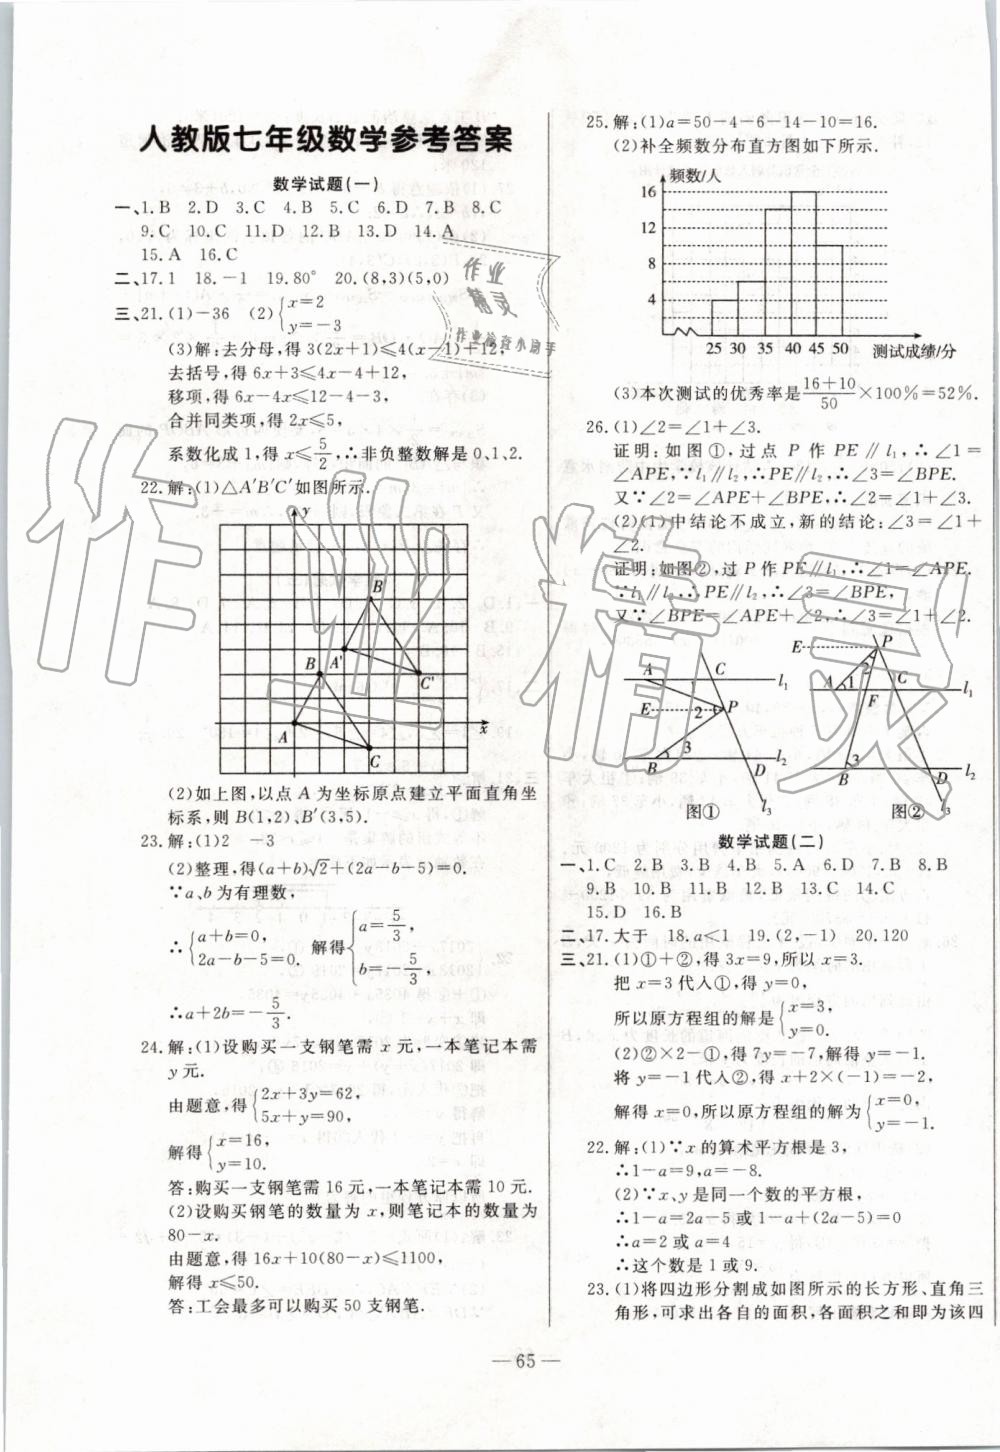 人教版七年级数学参考答案
数学试题(一)
一、1.B 2.D 3.C 4.B 5.C 6.D 7.B 8.C
9.C 10.C 11.D 12.B 13.D 14.A
15.A 16.C
二、17.1 18.-1 19.80° 20.(8,3)(5,0)
三、21.(1)-36 (2){x=2 y=-3
(3)解:去分母,得3(2x+1)≤4(x-1)+12,
去括号,得6x+3≤4x-4+12,
移项,得6x-4x≤12-4-3,
合并同类项,得2x≤5,
系数化成1,得x≤5/2,∴非负整数解是0、1、2.
22.解:(1)△A′B′C′如图所示.
y
B′
A′
C′
B
A
C
x
(2)如上图,以点A为坐标原点建立平面直角坐
标系,则B(1,2)、B′(3,5).
23.解:(1)2 -3
(2)整理,得(a+b)√2+(2a-b-5)=0.
∵a、b为有理数,
∴{a+b=0, 2a-b-5=0. 解得{a=5/3, b=-5/3,
∴a+2b=-5/3.
24.解:(1)设购买一支钢笔需x元,一本笔记本需
y元.
由题意,得{2x+3y=62, 5x+y=90,
解得{x=16, y=10.
答:购买一支钢笔需16元,一本笔记本需10元.
(2)设购买钢笔的数量为x,则笔记本的数量为
80-x.
由题意,得16x+10(80-x)≤1100,
解得x≤50.
答:工会最多可以购买50支钢笔.
25.解:(1)a=50-4-6-14-10=16.
(2)补全频数分布直方图如下所示.
频数/人
16
12
8
4
25 30 35 40 45 50 测试成绩/分
(3)本次测试的优秀率是(16+10)/50×100%=52%.
26.(1)∠2=∠1+∠3.
证明:如图①,过点P作PE∥l₁,∴∠1=
∠APE.∵l₁∥l₂,∴PE∥l₂,∴∠3=∠BPE.
又∵∠2=∠APE+∠BPE,∴∠2=∠1+∠3.
(2)(1)中结论不成立,新的结论:∠3=∠1+
∠2.
证明:如图②,过P作PE∥l₁,∴∠1=∠APE.
∵l₁∥l₂,∴PE∥l₂,∴∠3=∠BPE,
又∵∠BPE=∠APE+∠2,∴∠3=∠1+∠2.
A C l₁
1
E 2 P
3
B D l₂
l₃
图①
E P
2
A 1 F C l₁
3
B D l₂
l₃
图②
数学试题(二)
一、1.C 2.B 3.B 4.B 5.A 6.D 7.B 8.B
9.B 10.B 11.B 12.B 13.C 14.C
15.D 16.B
二、17.大于 18.a≤1 19.(2,-1) 20.120
三、21.(1)①+②,得3x=9,所以x=3.
把x=3代人①,得y=0,
所以原方程组的解是{x=3, y=0.
(2)②×2-①,得7y=-7,解得y=-1.
将y=-1代人②,得x+2×(-1)=-2,
解得x=0,所以原方程组的解为{x=0, y=-1.
22.解:(1)∵x的算术平方根是3,
∴1-a=9,a=-8.
(2)∵x、y是同一个数的平方根,
∴1-a=2a-5或1-a+(2a-5)=0
∴a=2或a=4
∴这个数是1或9.
23.(1)将四边形分割成如图所示的长方形、直角三
角形,可求出各自的面积,各面积之和即为该四
— 65 —
作业精灵
作业
精灵
作业检查小助手